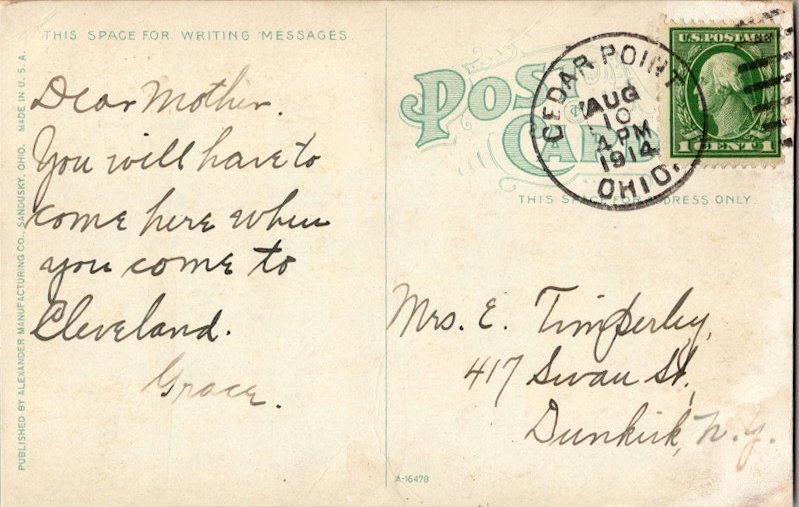 THIS SPACE FOR WRITING MESSAGES.
Dear Mother.
You will have to
come here when
you come to
Cleveland.
Grace.
PUBLISHED BY ALEXANDER MANUFACTURING CO., SANDUSKY, OHIO. MADE IN U. S. A.
POST
CARD
CEDAR POINT
AUG
10
4 PM
1914
OHIO.
U.S. POSTAGE
1 CENT 1
THIS SPACE FOR ADDRESS ONLY.
Mrs. E. Timperley,
417 Swan St.
Dunkirk, N.Y.
A-16478